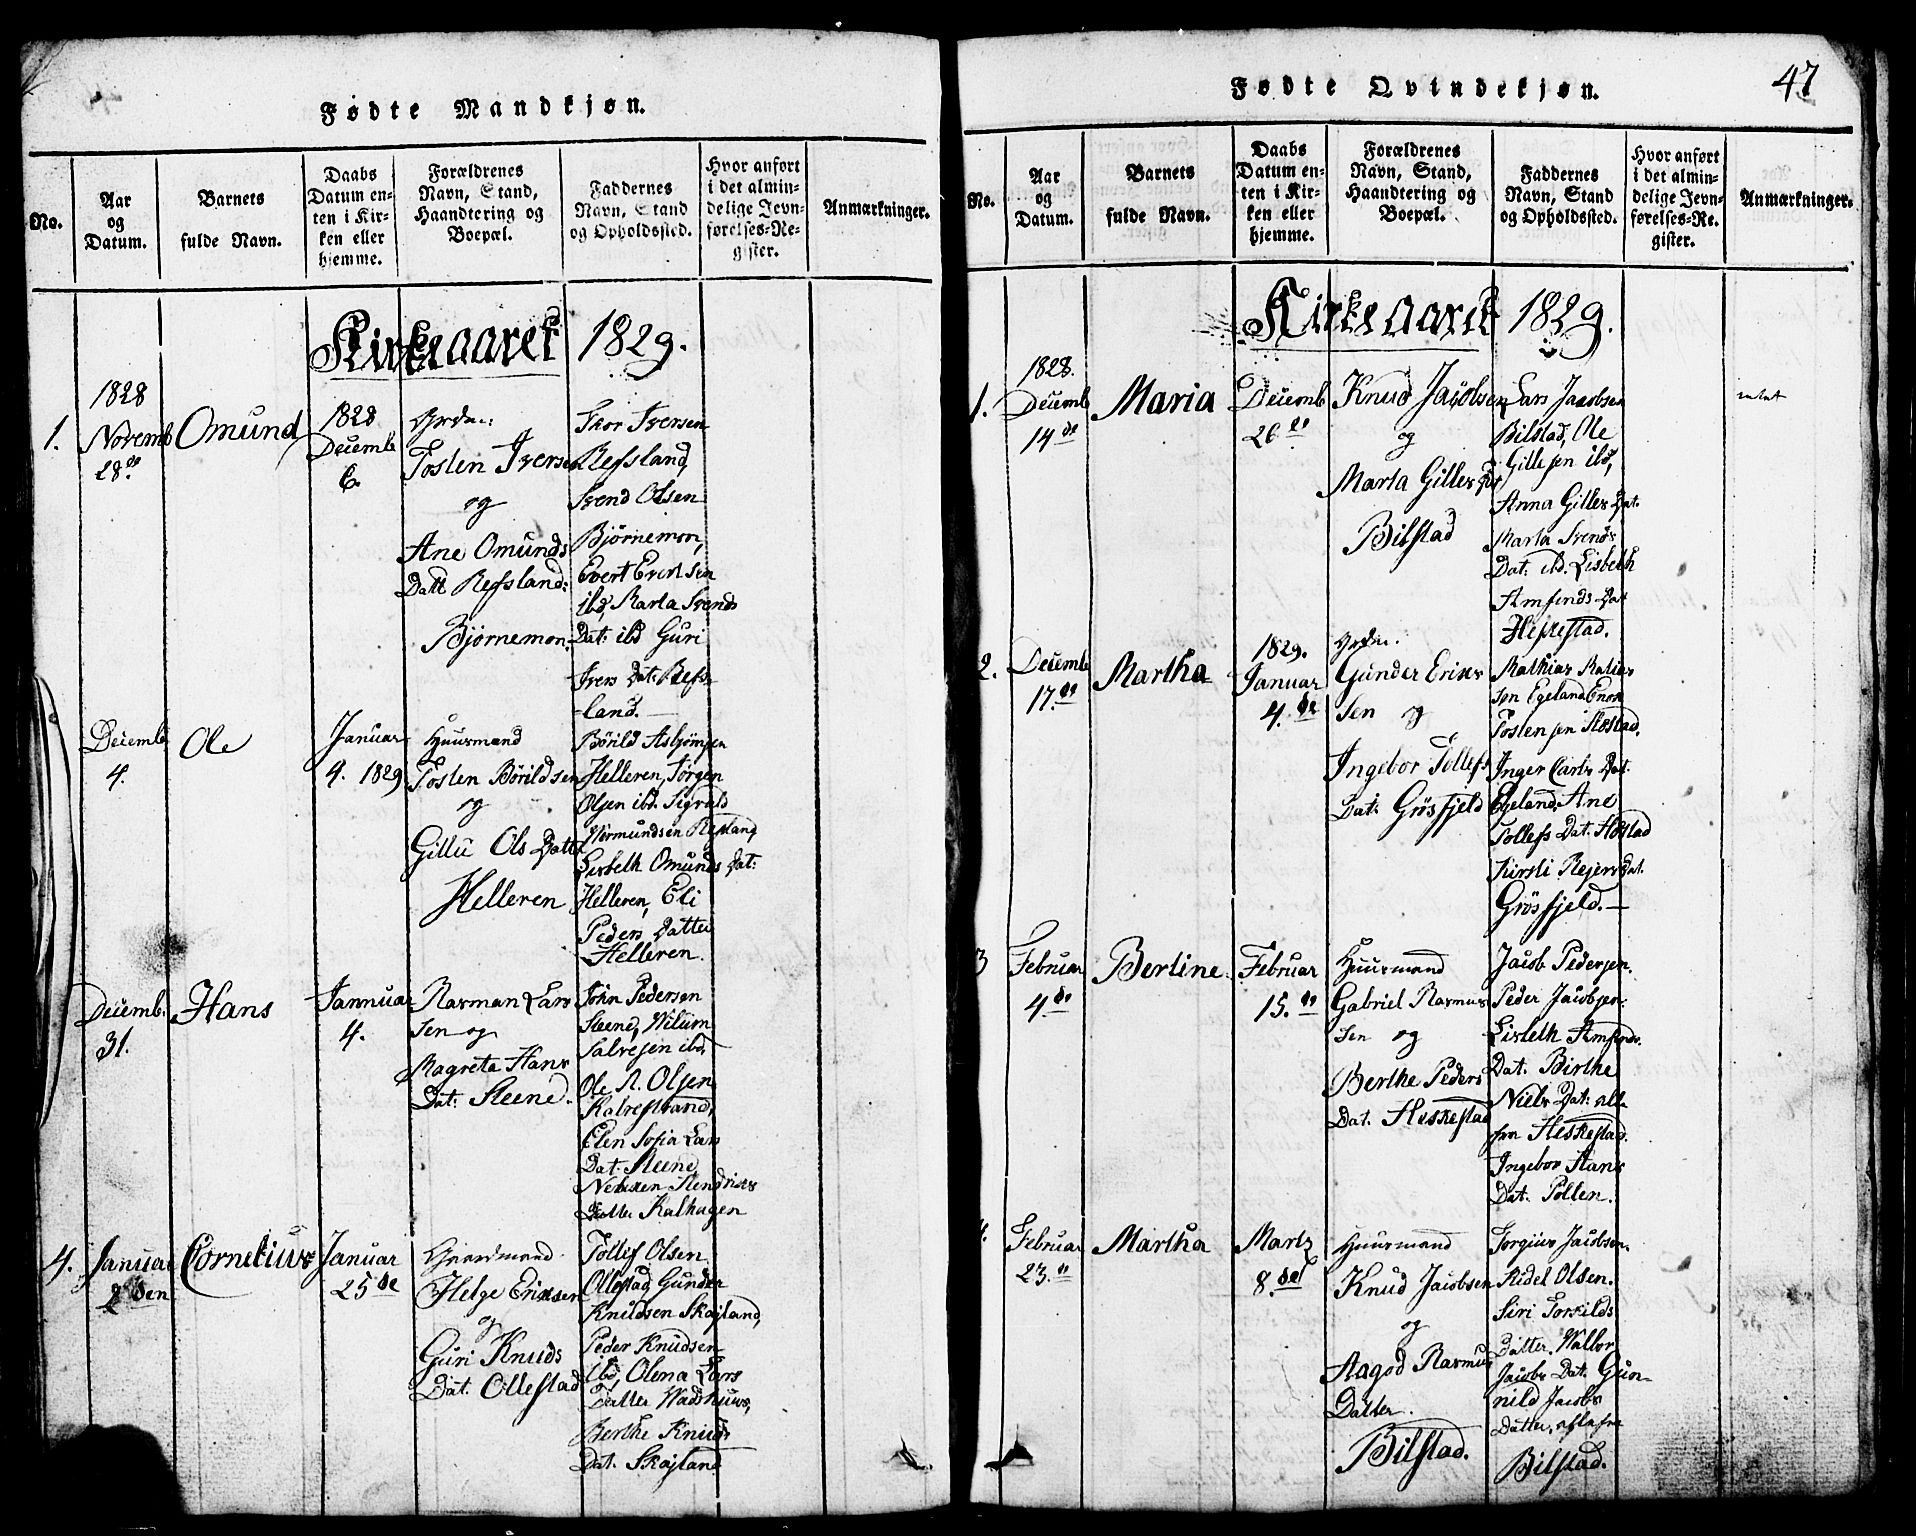 Fødte Mandkjøn.
No.
Aar
og
Datum.
Barnets
fulde Navn.
Daabs
Datum en-
ten i Kir-
ken eller
hjemme.
Forældrenes
Navn, Stand,
Haandtering og
Boepæl.
Faddernes
Navn, Stand
og Opholdssted.
Hvor anført
i det almin-
delige Jevn-
førelses-Re-
gister.
Anmærkninger.
Kirkeaaret 1829.
1.
1828
Novemb
28de
Omund
1828
Decemb
6.
Tosten Iversen
og
Ane Omunds
Datt Refsland:
Bjørnemon.
Thor Iversen
Refsland,
Svend Olsen
Bjørnemon,
Evert Eriksen
ibd, Marta Svends
Dat: ibd Guri
Ivers Dat: Refs-
land.
Decemb
4.
Ole
Januar
4. 1829
Huusmand
Tosten Börildsen
og
Gillu Ols Datter
Helleren
Börild Asbjörnsen
Helleren, Jörgen
Olsen ibd. Sigvald
Wermundsen Refsland
Lisbeth Omunds Dat:
Helleren, Eli
Peders Datter
Helleren.
Decemb.
31.
Hans
Jannuar
4.
Rasman Lars
Sen og
Magreta Hans
Dat: Steene.
John Pedersen
Steene, Wilum
Salvesen ibd,
Ole N. Olsen
Kalvestrand,
Elen Sofia Lars
Dat: Steene,
Hendriks
Datter Kalhagen
4.
Januar
2den
Cornelius
Januar
25de
Gaardmand
Helge Eriksen
og
Guri Knuds
Dat: Ollestad
Tollef Olsen
Ollestad, Gunder
Knudsen Skojland,
Peder Knudsen
ibd, Olena Lars
Datter Wadshuus,
Berthe Knuds
Dat. Skojland
Fødte Qvindekjøn.
47
No.
Aar
og
Datum.
Barnets
fulde Navn.
Daabs
Datum en-
ten i Kir-
ken eller
hjemme.
Forældrenes
Navn, Stand,
Haandtering og
Boepæl.
Faddernes
Navn, Stand
og Opholdssted.
Hvor anført
i det almin-
delige Jevn-
førelses-Re-
gister.
Anmærkninger.
Kirkeaaret 1829.
1.
1828.
Decemb
14de
Maria
Decemb
26de
Knud Jacobsen
og
Marta Gilles Dat
Bilstad
Lars Jacobsen
Bilstad, Ole
Gillesen ibd,
Anna Gilles Dat.
Marta Svends
Dat: ibd. Lisbeth
Amfinds Dat
Heskestad.
2.
Decemb
17.de
Martha
1829.
Januar
4.de
Gunder Eriks
Sen og
Ingebor Tollefs
Dat: Grösfjeld
Mathias Matias
sen Egeland, Enok
Tostensen
Inger Carls Dat.
Egeland, Ane
Tollefs Dat:
Kirsti Rejers Dat.
Grösfjeld.
3
Februar
4de
Bertine
Februar
15.de
Huusmand
Gabriel Rasmus
Sen og
Berthe Peders
Dat. Heskestad
Jacob Pedersen.
Peder Jacobsen
Lisbeth Amfinds.
Dat. Birthe
Niels Dat: alle
fra Heskestad.
Ingebor Hans
Dat. Pollen.
4.
Februar
23.de
Martha
Marts
8.de
Huusmand
Knud Jacobsen
og
Aagod Rasmus
Datter.
Bilstad.
Torgius Jacobsen.
Ridel Olsen.
Siri Torkilds
Datter, Walbor
Jacobs Dat: Gun-
nild Jacobs
Datter, alle fra
Bilstad.